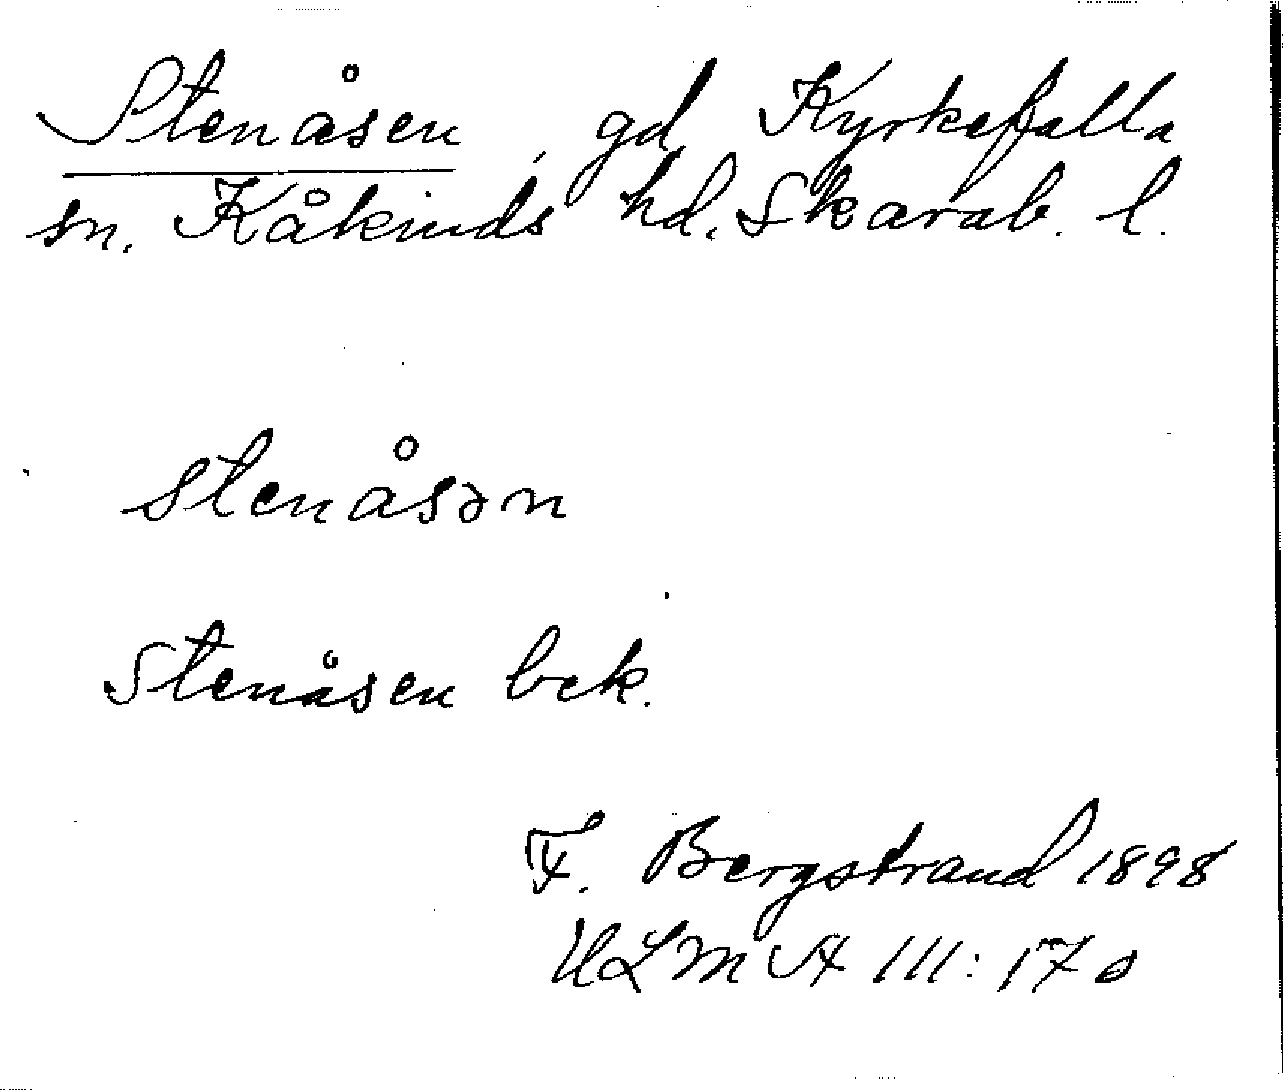 Stenåsen, gd Kyrkefalla
sn. Kåkinds hd. Skarab. l.
stenåsən
Stenåsen bek.
F. Bergstrand 1898
ULMA 111:170